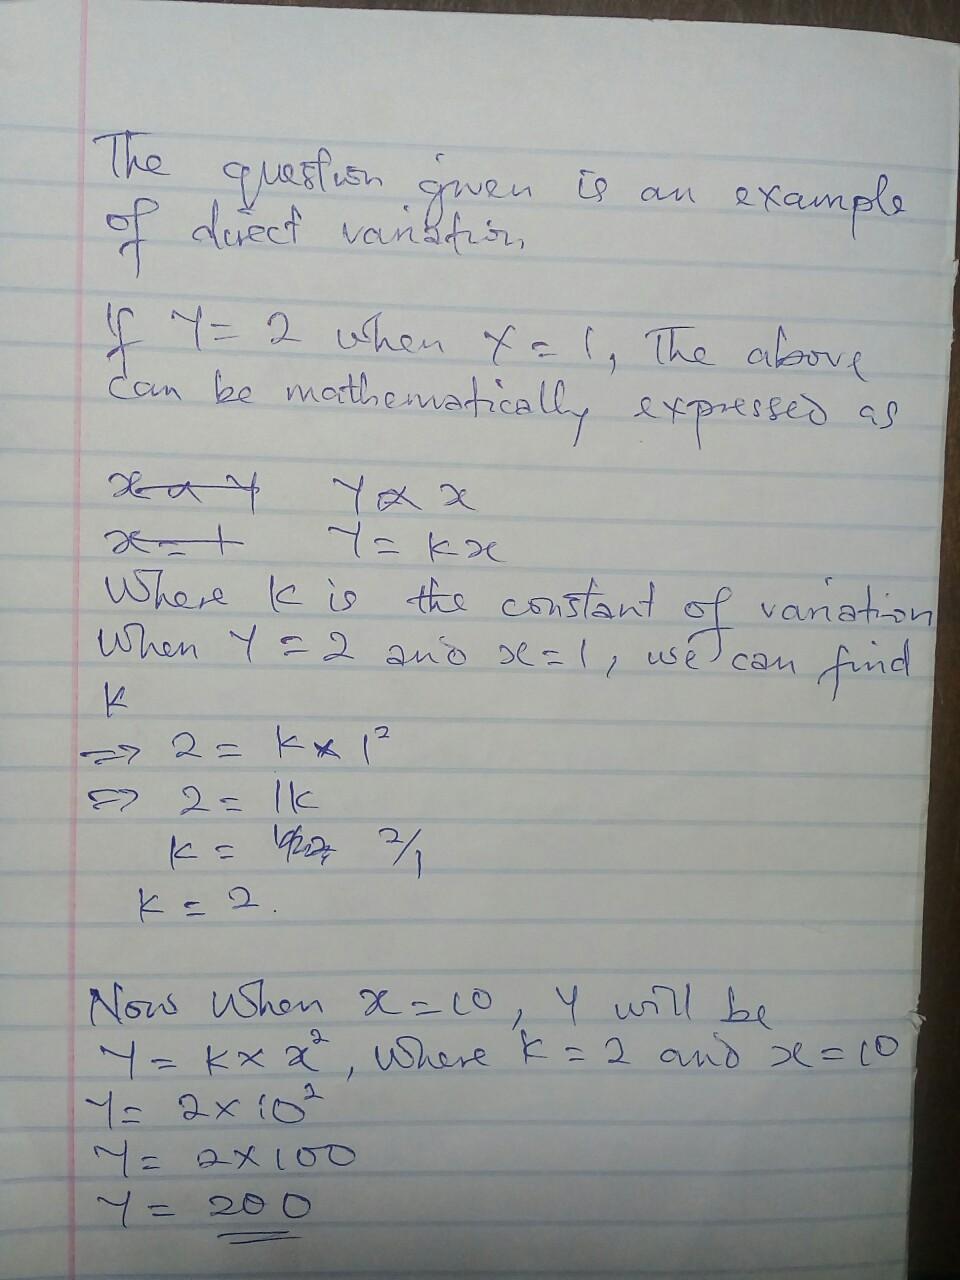 The question given is an example
of direct variation,
If Y = 2 when X = 1, The above
can be mathematically expressed as
x α Y Y α x
x = 1 Y = kx
Where k is the constant of variation
When Y = 2 and x = 1, we can find
k
⇒ 2 = k × 1²
⇒ 2 = 1k
k = 2/1
k = 2.
Now When x = 10, Y will be
Y = k × x², Where k = 2 and x = 10
Y = 2 × 10²
Y = 2 × 100
Y = 200